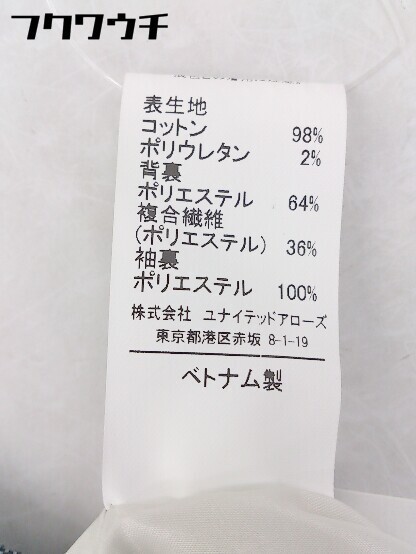 フクワウチ
表生地
コットン 98%
ポリウレタン 2%
背裏
ポリエステル 64%
複合繊維
(ポリエステル) 36%
袖裏
ポリエステル 100%
株式会社 ユナイテッドアローズ
東京都港区赤坂 8-1-19
ベトナム製